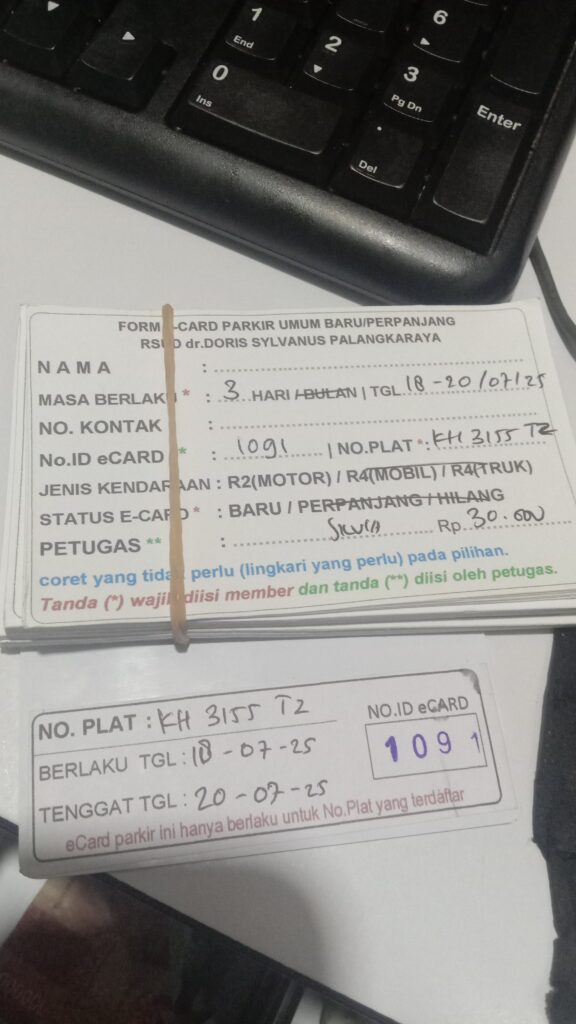 1
End
2
6
3
Pg Dn
0
Ins
.
Del
Enter
FORM E-CARD PARKIR UMUM BARU/PERPANJANG
RSUD dr.DORIS SYLVANUS PALANGKARAYA
NAMA :
MASA BERLAKU * : 3 HARI / BULAN | TGL 18 - 20/07/25
NO. KONTAK :
No.ID eCARD * : 1091 | NO.PLAT * : KH 3155 TZ
JENIS KENDARAAN : R2(MOTOR) / R4(MOBIL) / R4(TRUK)
STATUS E-CARD * : BARU / PERPANJANG / HILANG
PETUGAS ** : Silvia Rp. 30.000
coret yang tidak perlu (lingkari yang perlu) pada pilihan.
Tanda (*) wajib diisi member dan tanda (**) diisi oleh petugas.
NO. PLAT : KH 3155 TZ
NO.ID eCARD
BERLAKU TGL : 18 - 07 - 25
1091
TENGGAT TGL : 20 - 07 - 25
eCard parkir ini hanya berlaku untuk No.Plat yang terdaftar